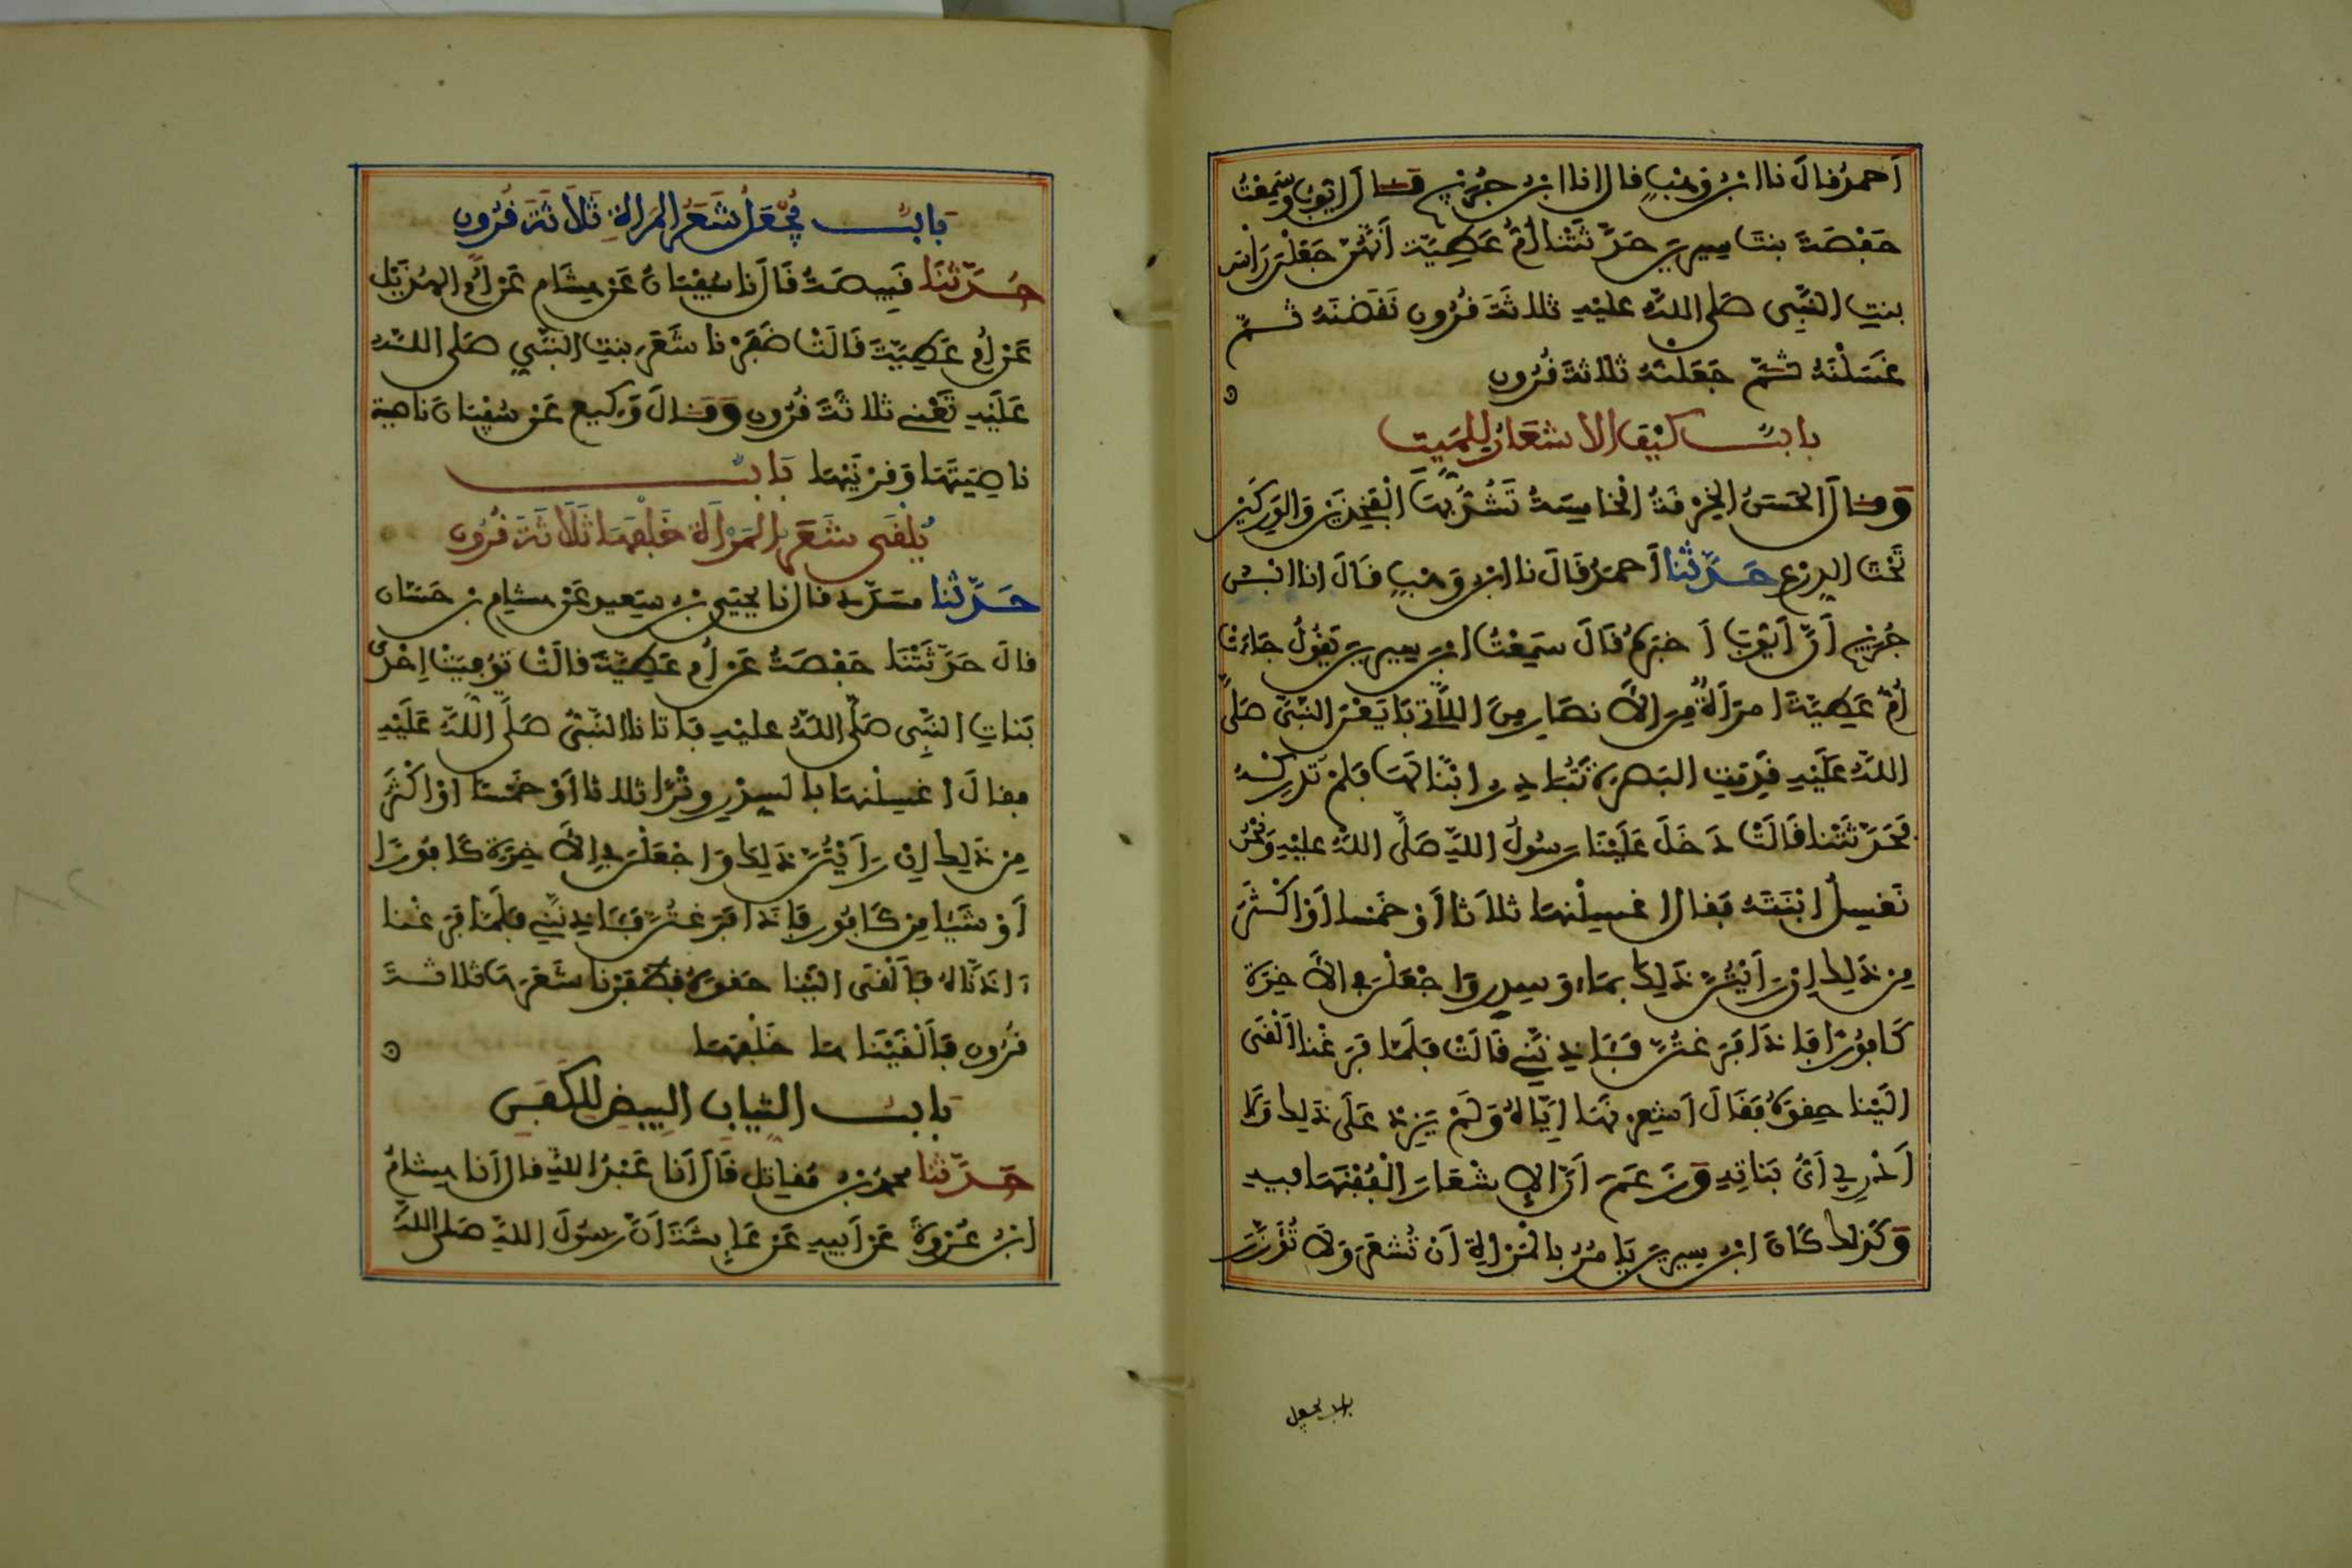 أَحمدُ قالَ نا ابنُ وَهْبٍ قال انا ابنُ جُرَيْجٍ قَالَ أَيّوبُ وسَمِعْتُ
حَفْصَةَ بنتَ سِيرِينَ حَدَّثَتْنا أُمُّ عَطِيَّةَ أَنَّهُنّ جَعَلْنَ رَأْسَ
بنتِ النَّبِي صَلى اللهُ عليْهِ ثلاثَةَ قُرُونٍ نَقَضْنَهُ ثُمّ
غَسَلْنَهُ ثُمّ جَعَلْنَهُ ثلاثةَ قُرُونٍ
بابٌ كَيْفَ الاشعَارُ لِلمَيتِ
وَقَالَ الحَسَنُ الخِرْقَةُ الْخَامِسَةُ تَشُدُّ بِهَا الْفَخِذَيْنِ وَالوَرِكَيْنِ
تَحْتَ الدِرْعِ حَدَّثَنا أَحمَدُ قَالَ نا ابنُ وَهْبٍ قَالَ انا ابْنُ
جُرَيْجٍ أَنَّ أَيّوبَ أَخبَرَهُ قَالَ سَمِعْتُ ابنَ سِيرِينَ يَقُولُ جَاءَتْ
أُمُّ عَطِيَّةَ امرَأَةٌ مِنَ الأَنصَارِ مِنَ اللَّاتِي بَايَعْنَ النَّبِيَّ صَلَّى
اللهُ عَلَيْهِ قَدِمَتِ البَصْرَةَ تُبَادِرُ ابْنًا لَهَا فَلَمْ تُدْرِكْهُ
فَحَدَّثَتْنا قَالَتْ دَخَلَ عَلَيْنَا رَسُولُ اللهِ صَلَّى اللهُ عليْهِ وَنَحْنُ
نَغسِلُ ابْنَتَهُ فَقالَ اغسِلْنهَا ثلاَثا أَوْ خَمْسا أَوْ اكْثَرَ
مِن ذَلِكَ إِنْ رَأَيْتُنَّ ذَلِكَ بِمَاءٍ وَسِدرٍ وَاجْعَلْنَ فِي الأَخِرَةِ
كَافُورًا فَإِذَا فَرَغتُنَّ فَآذِنَّنِي قَالَتْ فَلَمّا فَرَغْنا أَلْقَى
الَيْنا حِقوَهُ فَقَالَ أَشعِرنَهَا إِيّاهُ وَلَمْ يَزِدْ عَلَى ذَلِكَ وَلَا
أَدْرِي أَيُّ بَناتِهِ وَزَعَمَ أَنَّ الإِشْعَارَ الْفُفْنَهَا فِيهِ
وَكَذلِكَ كَانَ ابنُ سِيرِينَ يَامُرُ بالْمَرْأَةِ أَنْ تُشعَرَ وَلَا تُؤزَرَ
باب يجعل
بابٌ يُجْعَلُ شَعَرُ المَرأةِ ثَلَاثَةَ قُرُونٍ
حَدَّثَنَا قَبِيصَةُ قَالَ نا سُفْيَانُ عَنْ هِشَامٍ عَنْ أُمِّ الهُذَيْلِ
عَنْ أُمِّ عَطِيَّةَ قَالَتْ ضَفَرْنا شَعَرَ بنتِ النَّبِيِّ صَلى اللهُ
عَلَيْهِ تَعْنِي ثلاثَةَ قُرُونٍ وَقَالَ وَكِيع عَنْ سُفْيَانَ ناصية
ناصِيَتَهَا وَقَرْنَيْهَا بَابٌ
يُلْقَى شَعَرُ الْمَرْأَةِ خَلْفَهَا ثَلَاثَةَ قُرُونٍ
حَدَّثَنا مسَدّد قال نا يَحْيَى بنُ سَعِيدٍ عَنْ هِشامِ بنِ حَسّان
قالَ حَدَّثَتْنَا حَفْصَةُ عَنْ أُمِّ عَطِيَّةَ قالَتْ تُوُفِّيَتْ إِحْدَى
بَناتِ النَّبِي صَلَّى اللهُ عليْهِ فَأتانا النَّبِيُّ صَلَّى اللهُ عَلَيْهِ
فقالَ اغسِلْنهَا بالسِدْرِ وِتْرًا ثلاثا أَوْ خَمْسًا أَوْ أكْثَرَ
مِن ذَلِكَ إِنْ رَأَيْتُنَّ ذَلِكَ وَاجْعَلْنَ فِي الأَخِرَةِ كَافُورًا
أَوْ شَيْئا مِن كَافُورٍ فَإذَا فَرَغتُنَّ فَآذِنَّنِي فَلَمّا فَرَغْنا
ءاذَنّاهُ فَأَلْقَى اليْنا حقوَهُ فَضَفَرْنا شَعَرَهَا ثلاثَةَ
قُرُونٍ فَأَلْقَيْنَاهَا خَلْفَهَا
بابُ الثِيابِ البِيضِ لِلكَفَنِ
حَدَّثَنا محمّدُ بنُ مُقاتِلٍ قَالَ أَنا عَبْدُ اللهِ قال أَنا هِشامُ
ابنُ عُرْوَةَ عَنْ أَبِيهِ عَنْ عَايِشَةَ أَنَّ رَسُولَ اللهِ صَلى اللهُ